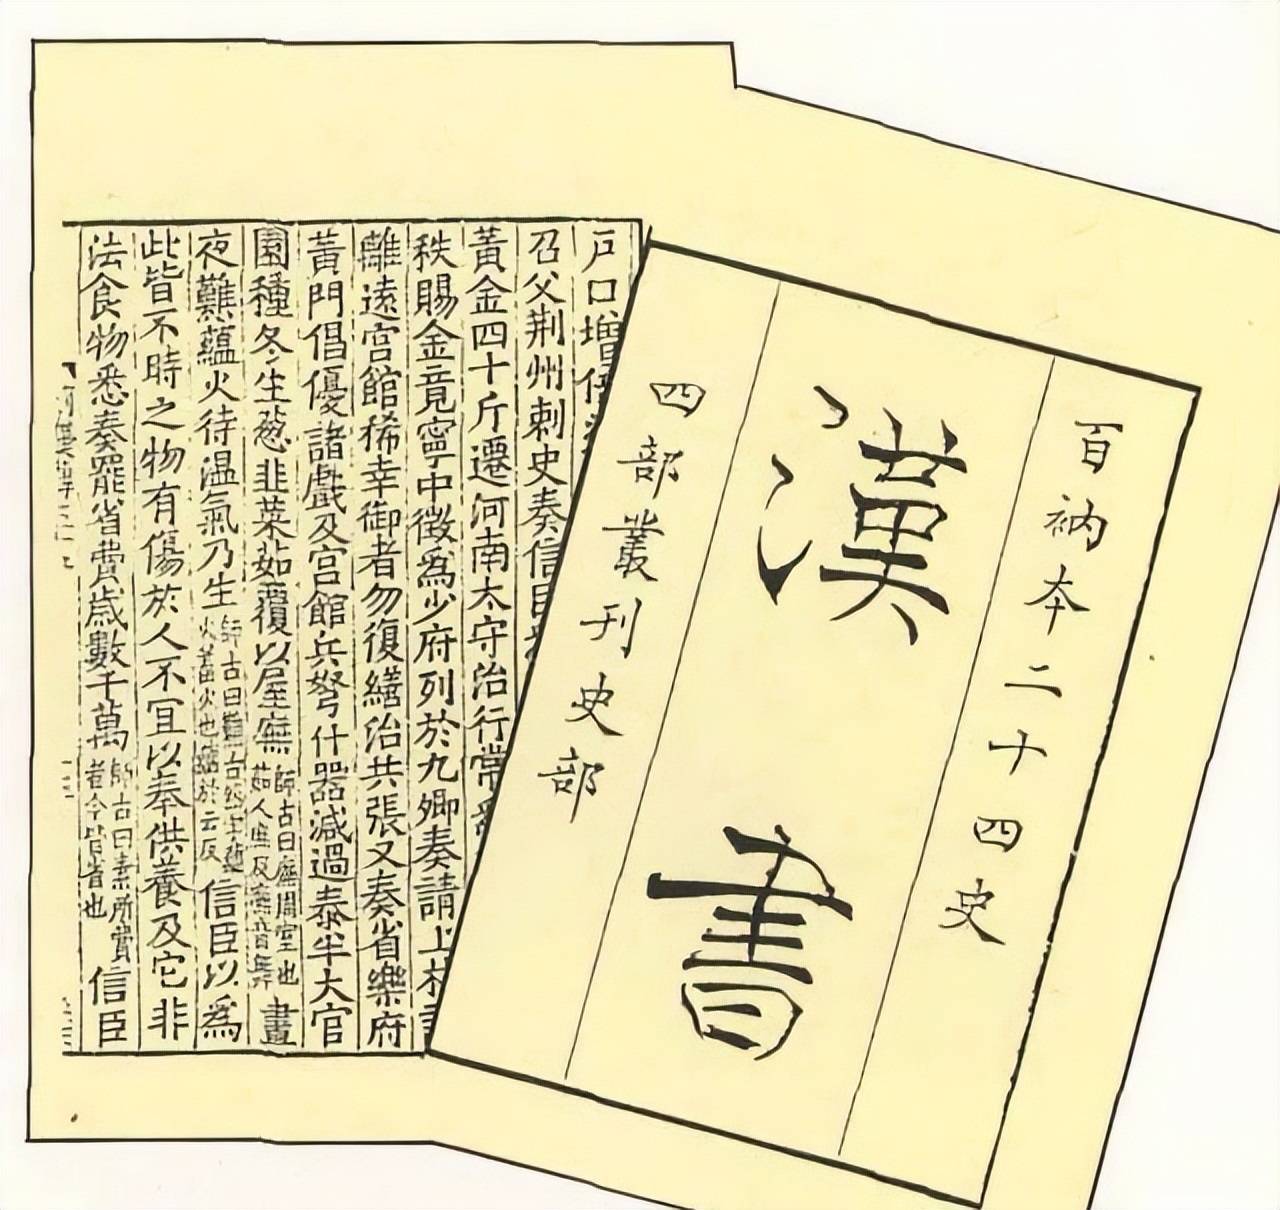 百衲本二十四史
漢書
四部叢刊史部
戶口增倍
召父荆州刺史奏信臣
黃金四十斤遷河南太守治行常爲
秩賜金竟寧中徵爲少府列於九卿奏請上林
離遠宫館稀幸御者勿復繕治共張又奏省樂府
黃門倡優諸戲及宫館兵弩什器減過泰半大官
園種冬生葱韭菜茹覆以屋廡師古曰廡周室也茹人庶反廡音舞晝
夜難蘊火待温氣乃生師古曰難古然字蘊火蓄火也蘊於云反信臣以爲
此皆不時之物有傷於人不宜以奉供養及它非
法食物悉奏罷省費歲數千萬師古曰素所費者今皆省也信臣